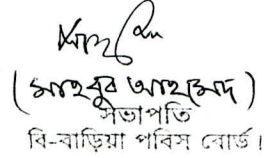 (মাহবুব আহমেদ)
সভাপতি
বি-বাড়িয়া পবিস বোর্ড।